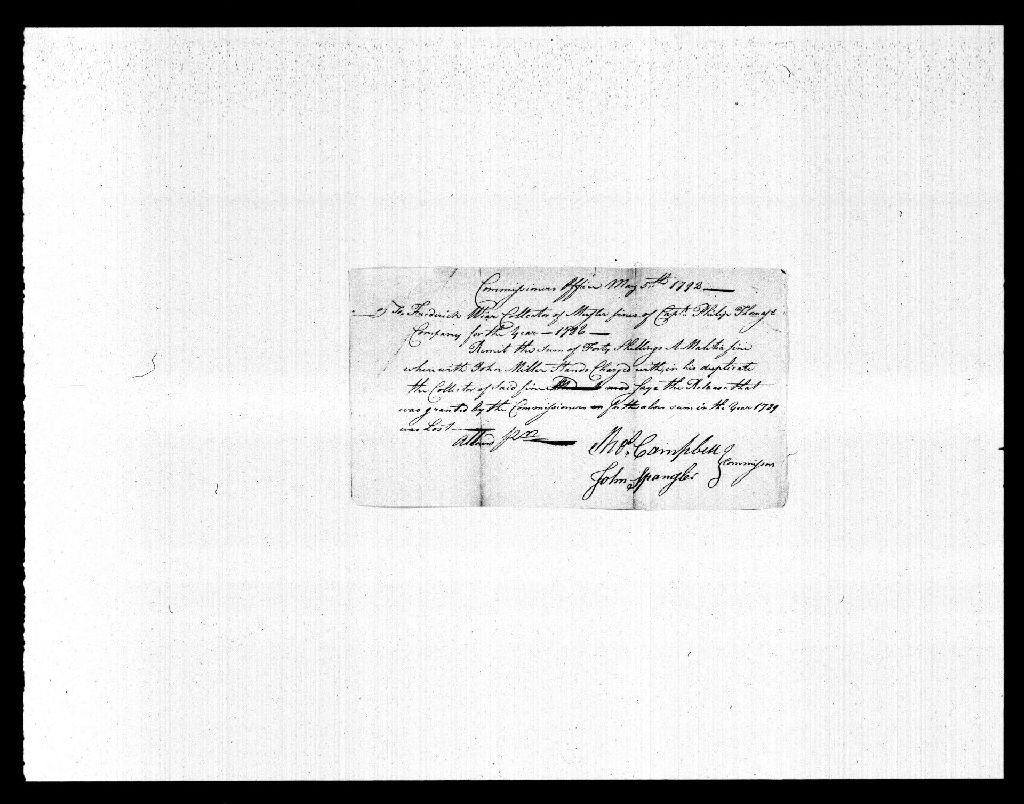 Commissioners Office May 5th 1792
To Frederick Wier Collector of Muster fines of Capt. Philip
Company for the year 1786
Remit the Sum of Forty Shillings A Malitia fine
wherewith John Miller Stands Charged with, in his duplicate
the Collector of Said fine and Says the Release that
was granted by the Commissioners for the above sum in the Year 1789
was Lost
Thos. Campbell
John Spangler